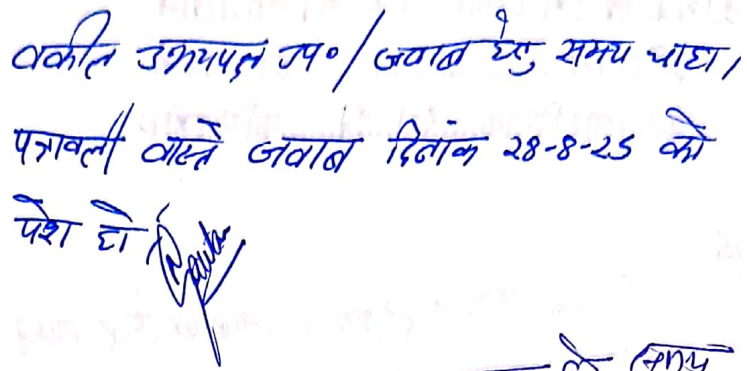 वकील उभयपक्ष उप० / जवाब हेतु समय चाहा ।
पत्रावली वास्ते जवाब दिनांक 28-8-25 को
पेश हो ।
समय